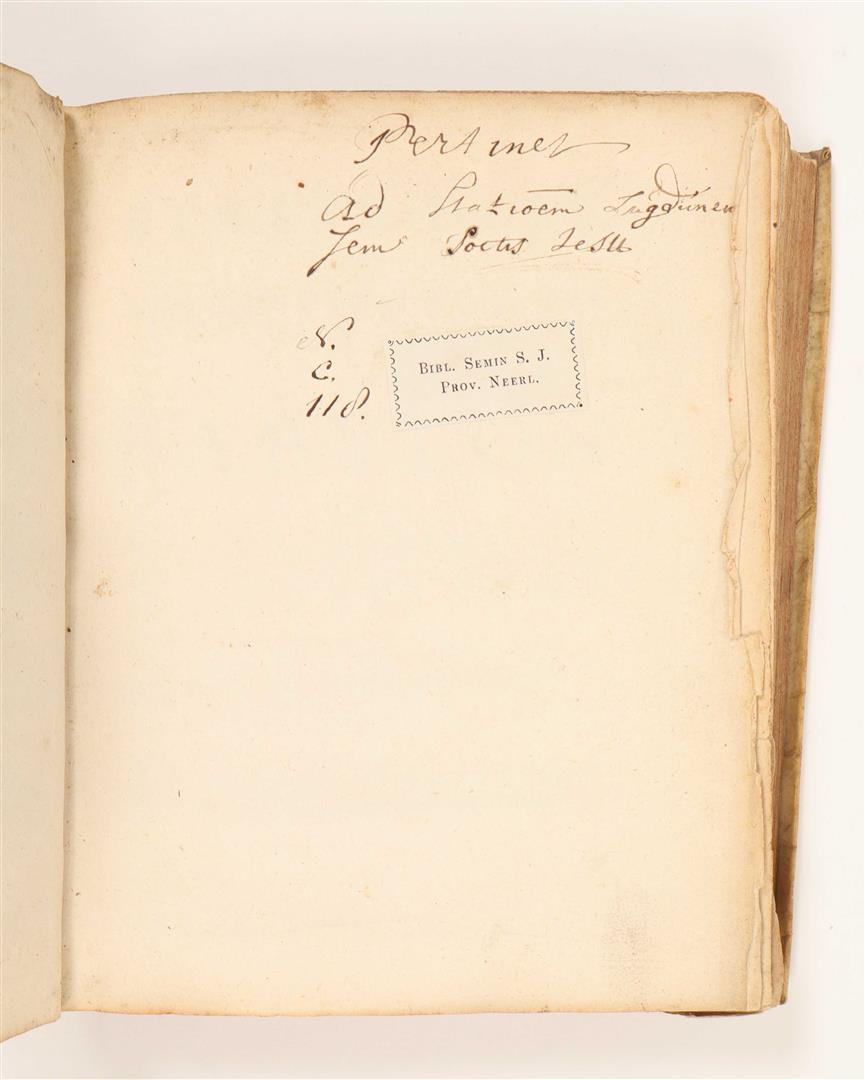 Pertinet
ad Statiōem Lugdunen
sem Soctis Iesu
N.
C.
118.
BIBL. SEMIN S. J.
PROV. NEERL.